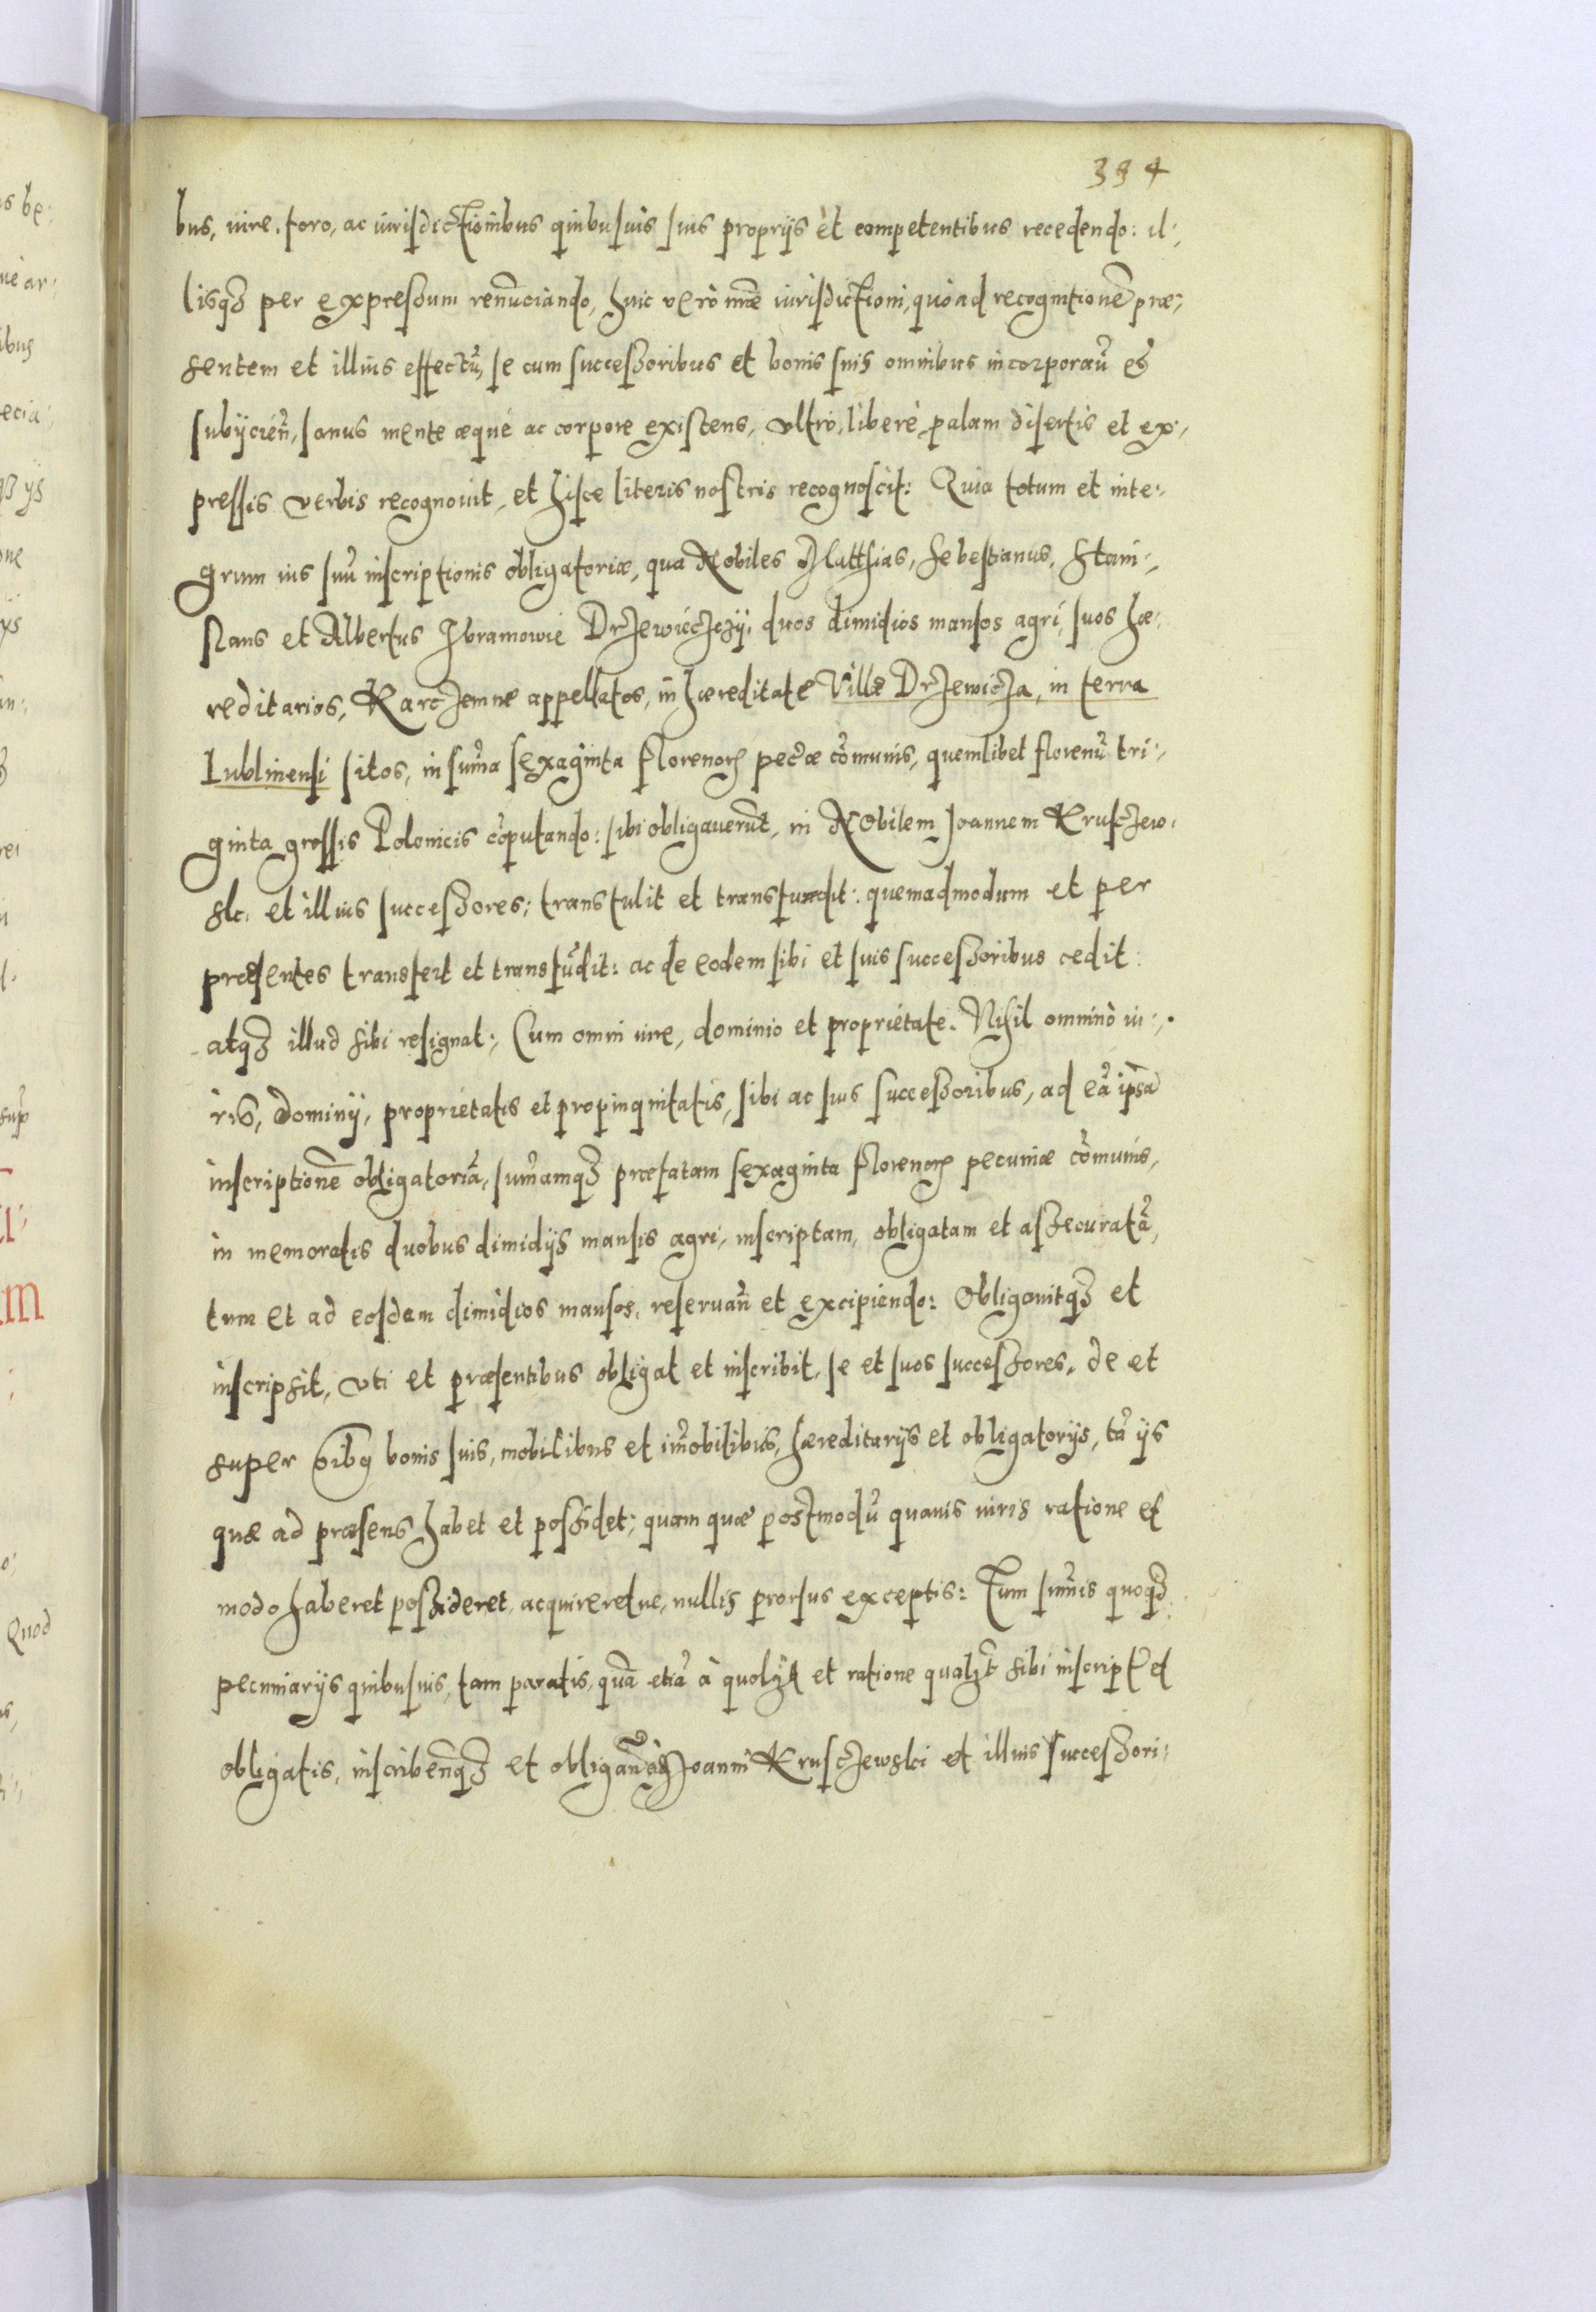 394
bus, iure, foro, ac iurisdictionibus quibusuis suis proprijs et competentibus recedendo: il:
lisqȝ per expressum renūciando, huic vero nr̄æ iurisdictioni, quoad recognitionē præ:
sentem et illius effectū, se cum successoribus et bonis suis omnibus incorporan̄ et
subijcien̄, sanus mente æque ac corpore existens, vltro, libere, palam disertis et ex:
pressis verbis recognouit, et hisce literis nostris recognoscit: Quia totum et inte:
grum ius suū inscriptionis obligatoriæ, qua Nobiles Matthias, Sebestianus, Stani:
slaus et Albertus Ibramowie Drzewieczczy, duos dimidios mansos agri, suos hæ:
reditarios, Karczemne appellatos, in hæreditate Villæ Drzewicza, in terra
Lublinensi sitos, in sum̄a sexaginta florenorꝝ pec̄æ com̄unis, quemlibet florenū tri:
ginta grossis Polonicis cōputando: sibi obligauerūt, in Nobilem Joannem Krusczew:
ski et illius successores; transtulit et transfundit: quemadmodum et per
præsentes transfert et transfūdit: ac de eodem sibi et suis successoribus cedit:
atqȝ illud sibi resignat: Cum omni iure, dominio et proprietate. Nihil omnino iu:
ris, dominij, proprietatis et propinquitatis, sibi ac suis successoribus, ad eā ipsā
inscriptionē obligatoriā, sum̄amqȝ præfatam sexaginta florenorꝝ pecuniæ com̄unis,
in memoratis duobus dimidijs mansis agri, inscriptam, obligatam et assecuratā,
tum et ad eosdem dimidios mansos, reseruan̄ et excipiendo: Obligauitqȝ et
inscripsit, vti et præsentibus obligat et inscribit, se et suos successores, de et
super oībꝰ bonis suis, mobilibus et im̄obilibus, hæreditarijs et obligatorijs, tā ijs
quæ ad præsens habet et possidet; quam quæ postmodū quauis iuris ratione et
modo haberet possideret, acquireretue, nullis prorsus exceptis: Tum sum̄is quoqȝ
pecuniarijs quibusuis, tam paratis, quā etiā à quolibet et ratione qualibet sibi inscript̄ et
obligatis, inscribenđqȝ et obligan̄đ Joanni Krusczewski et illius successori: